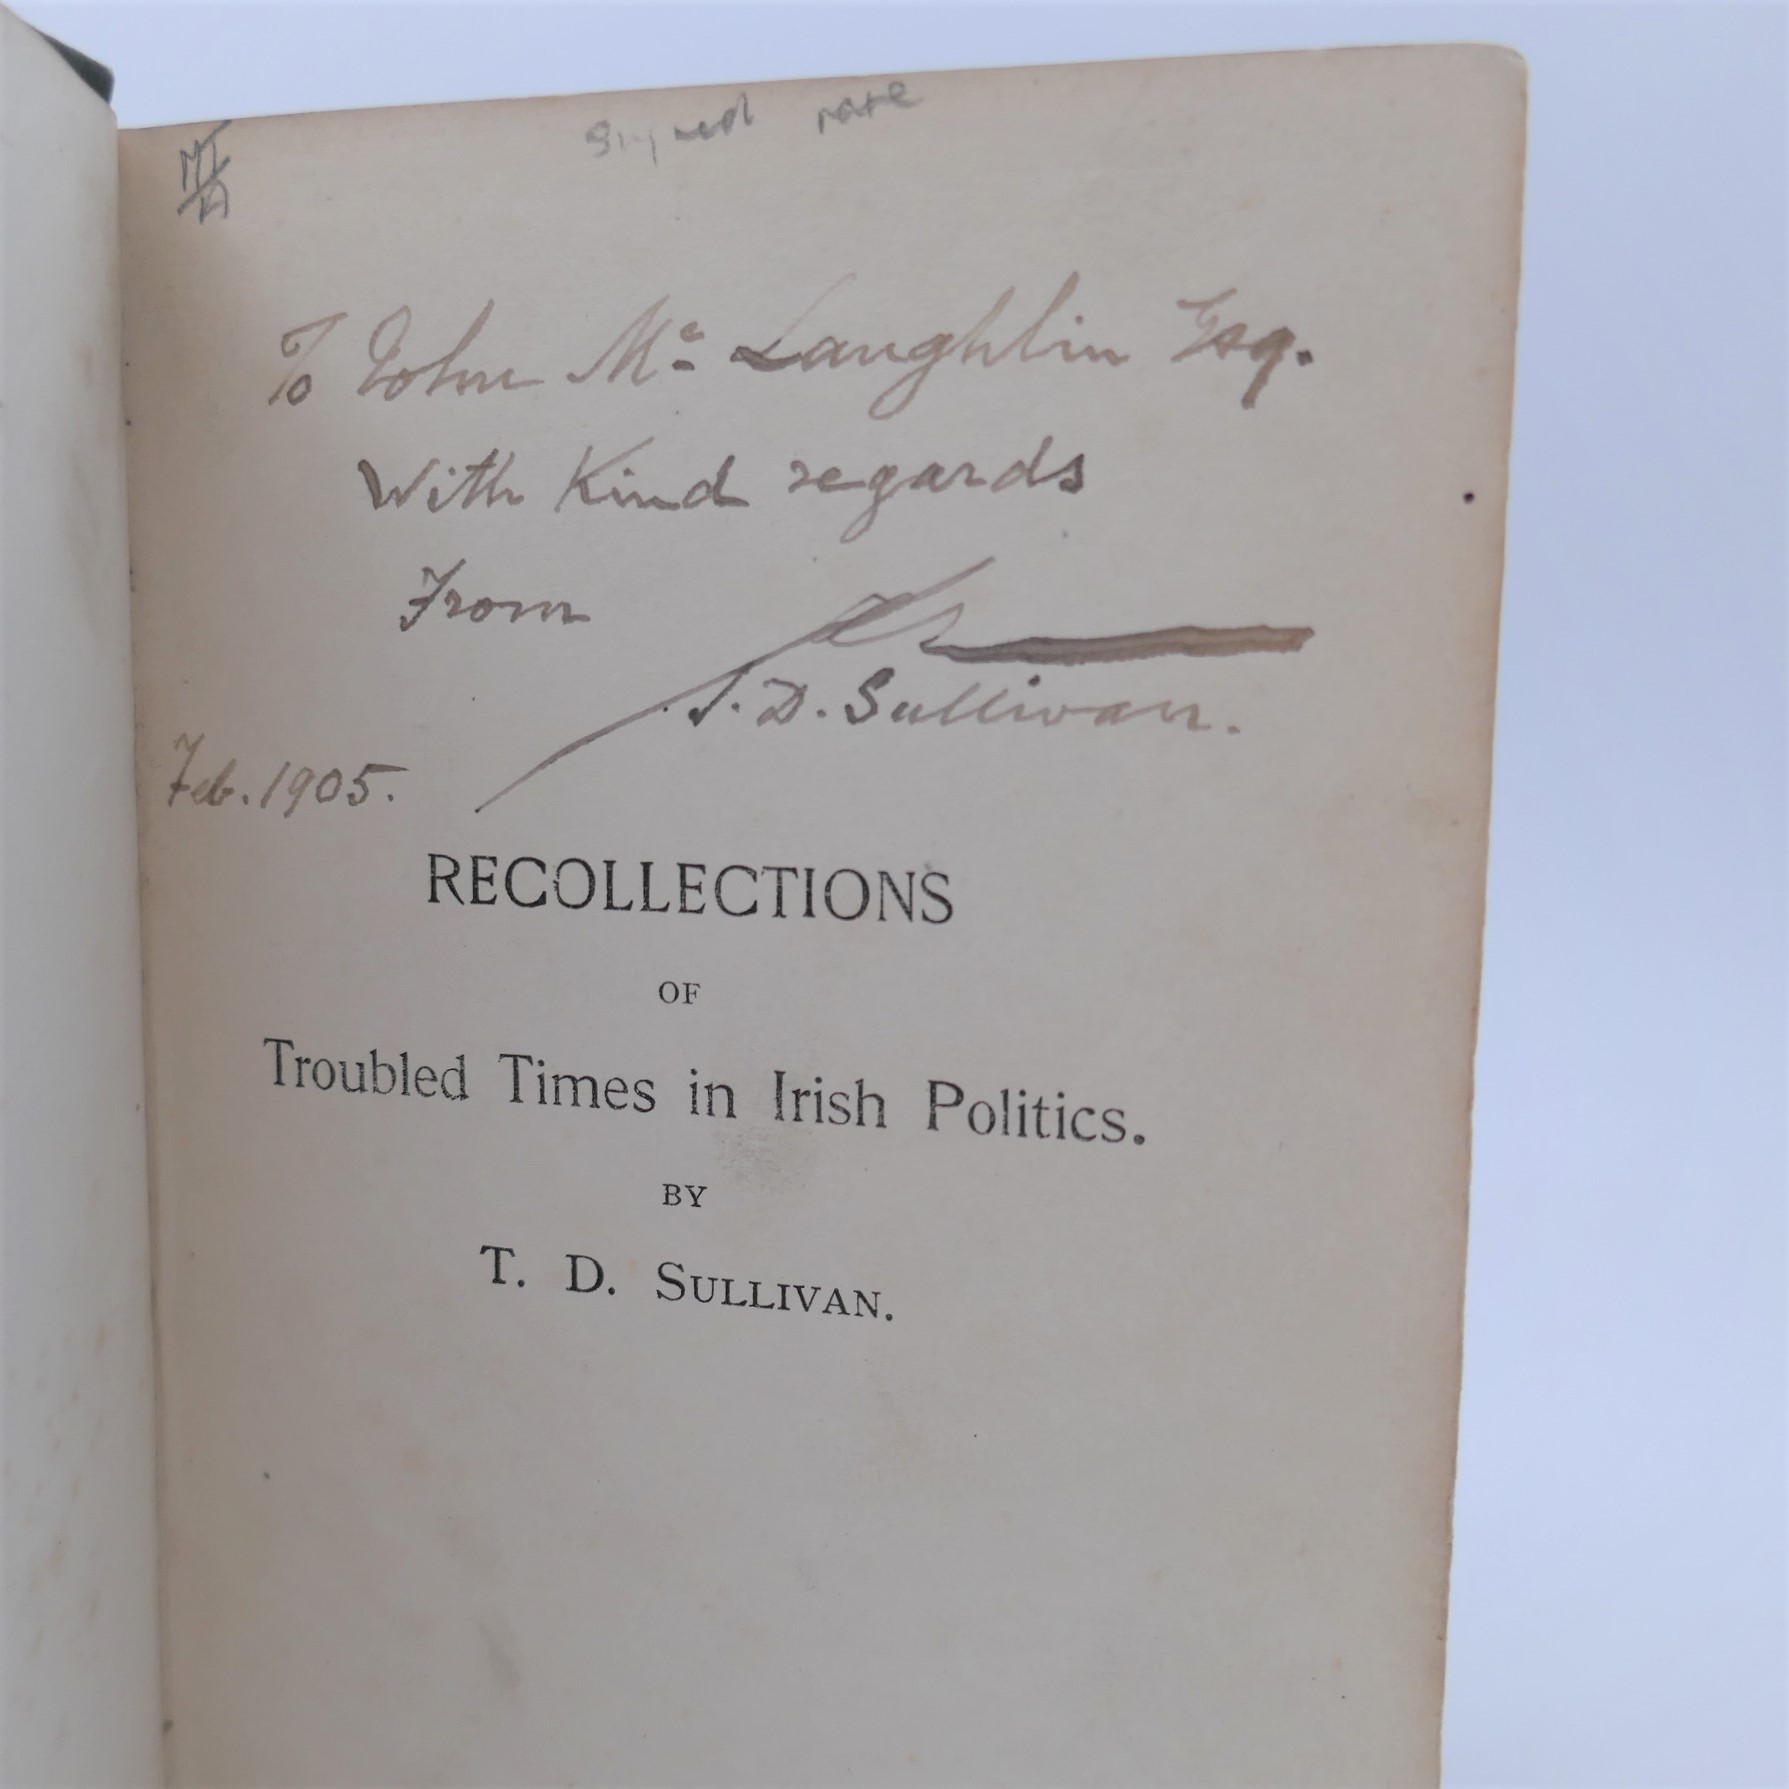 Signed rare
To John Mc Laughlin Esq.
With Kind regards
From
T. D. Sullivan.
Feb. 1905.
RECOLLECTIONS
OF
Troubled Times in Irish Politics.
BY
T. D. SULLIVAN.